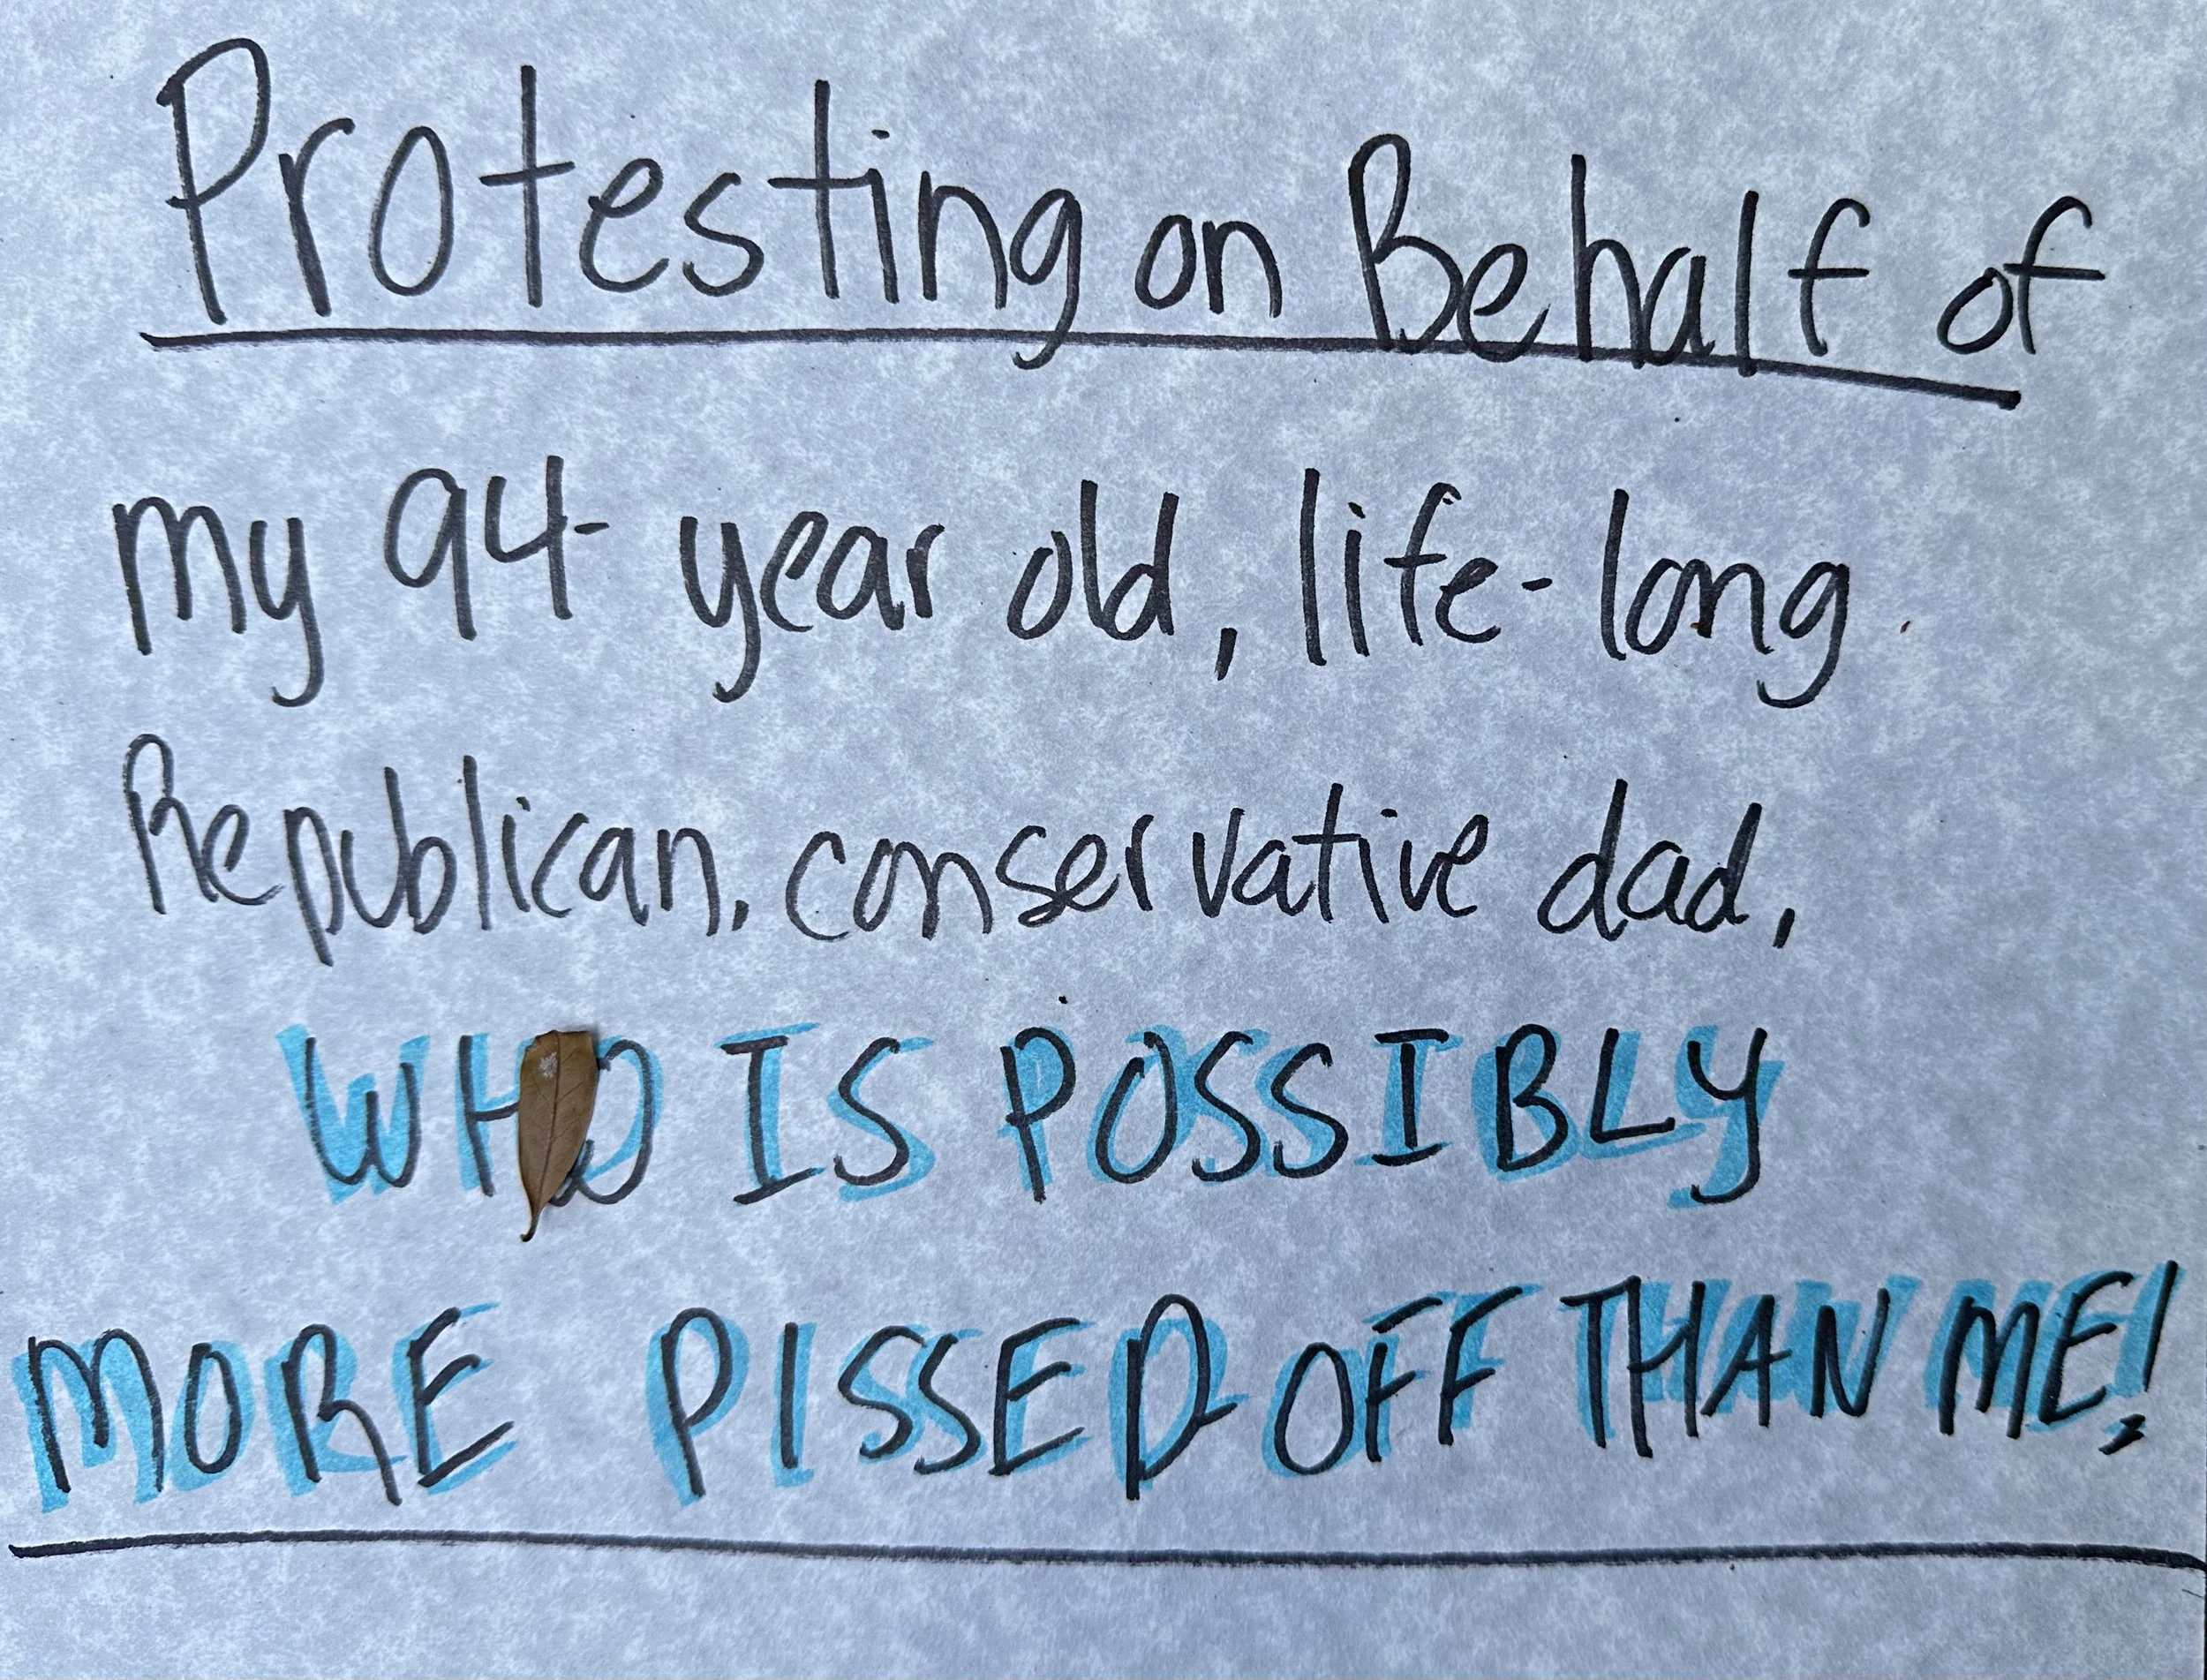 Protesting on Behalf of
my 94-year old, life-long
Republican, conservative dad,
WHO IS POSSIBLY
MORE PISSED OFF THAN ME!